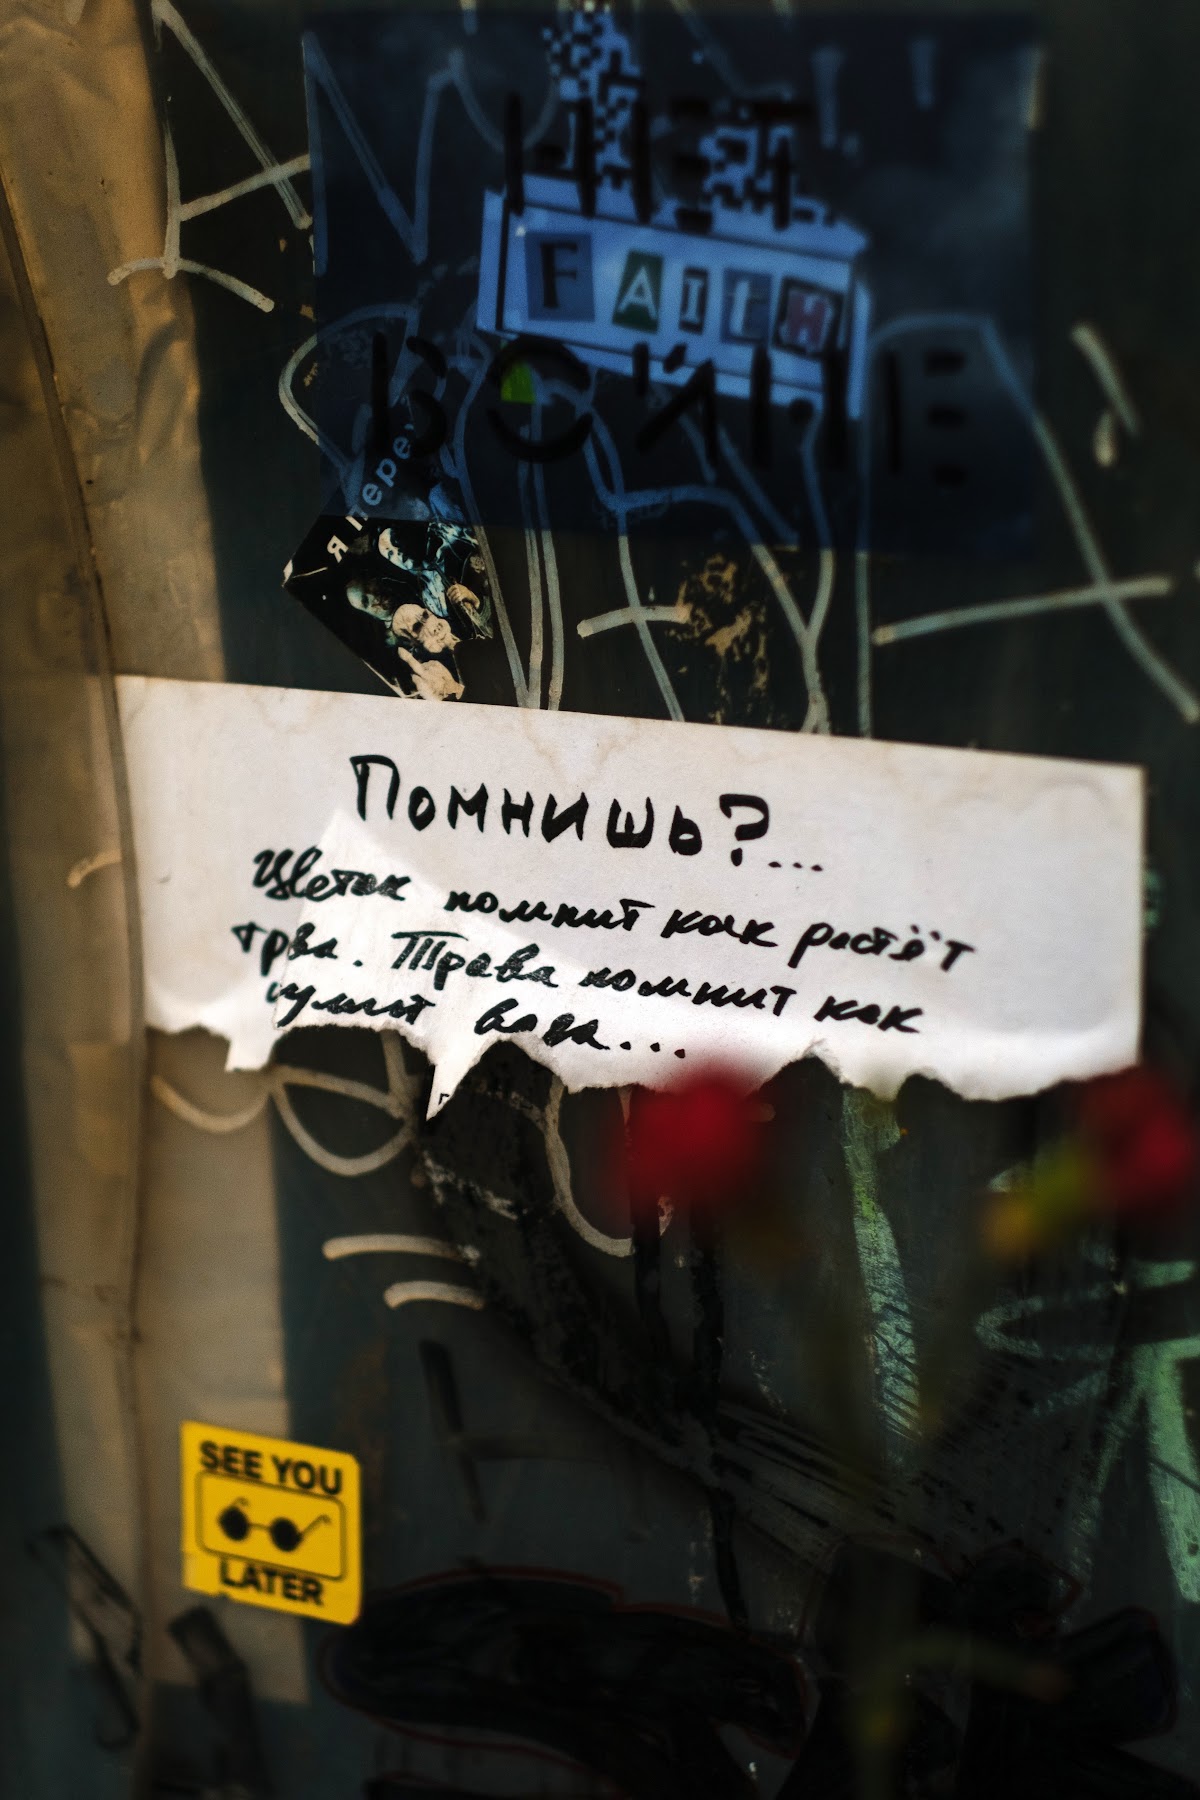 НЕТ
FAITH
ВОЙНЕ
Я Пере
Помнишь?...
Цветок помнит как растёт
трва. Трава помнит как
шумит вода...
SEE YOU
LATER